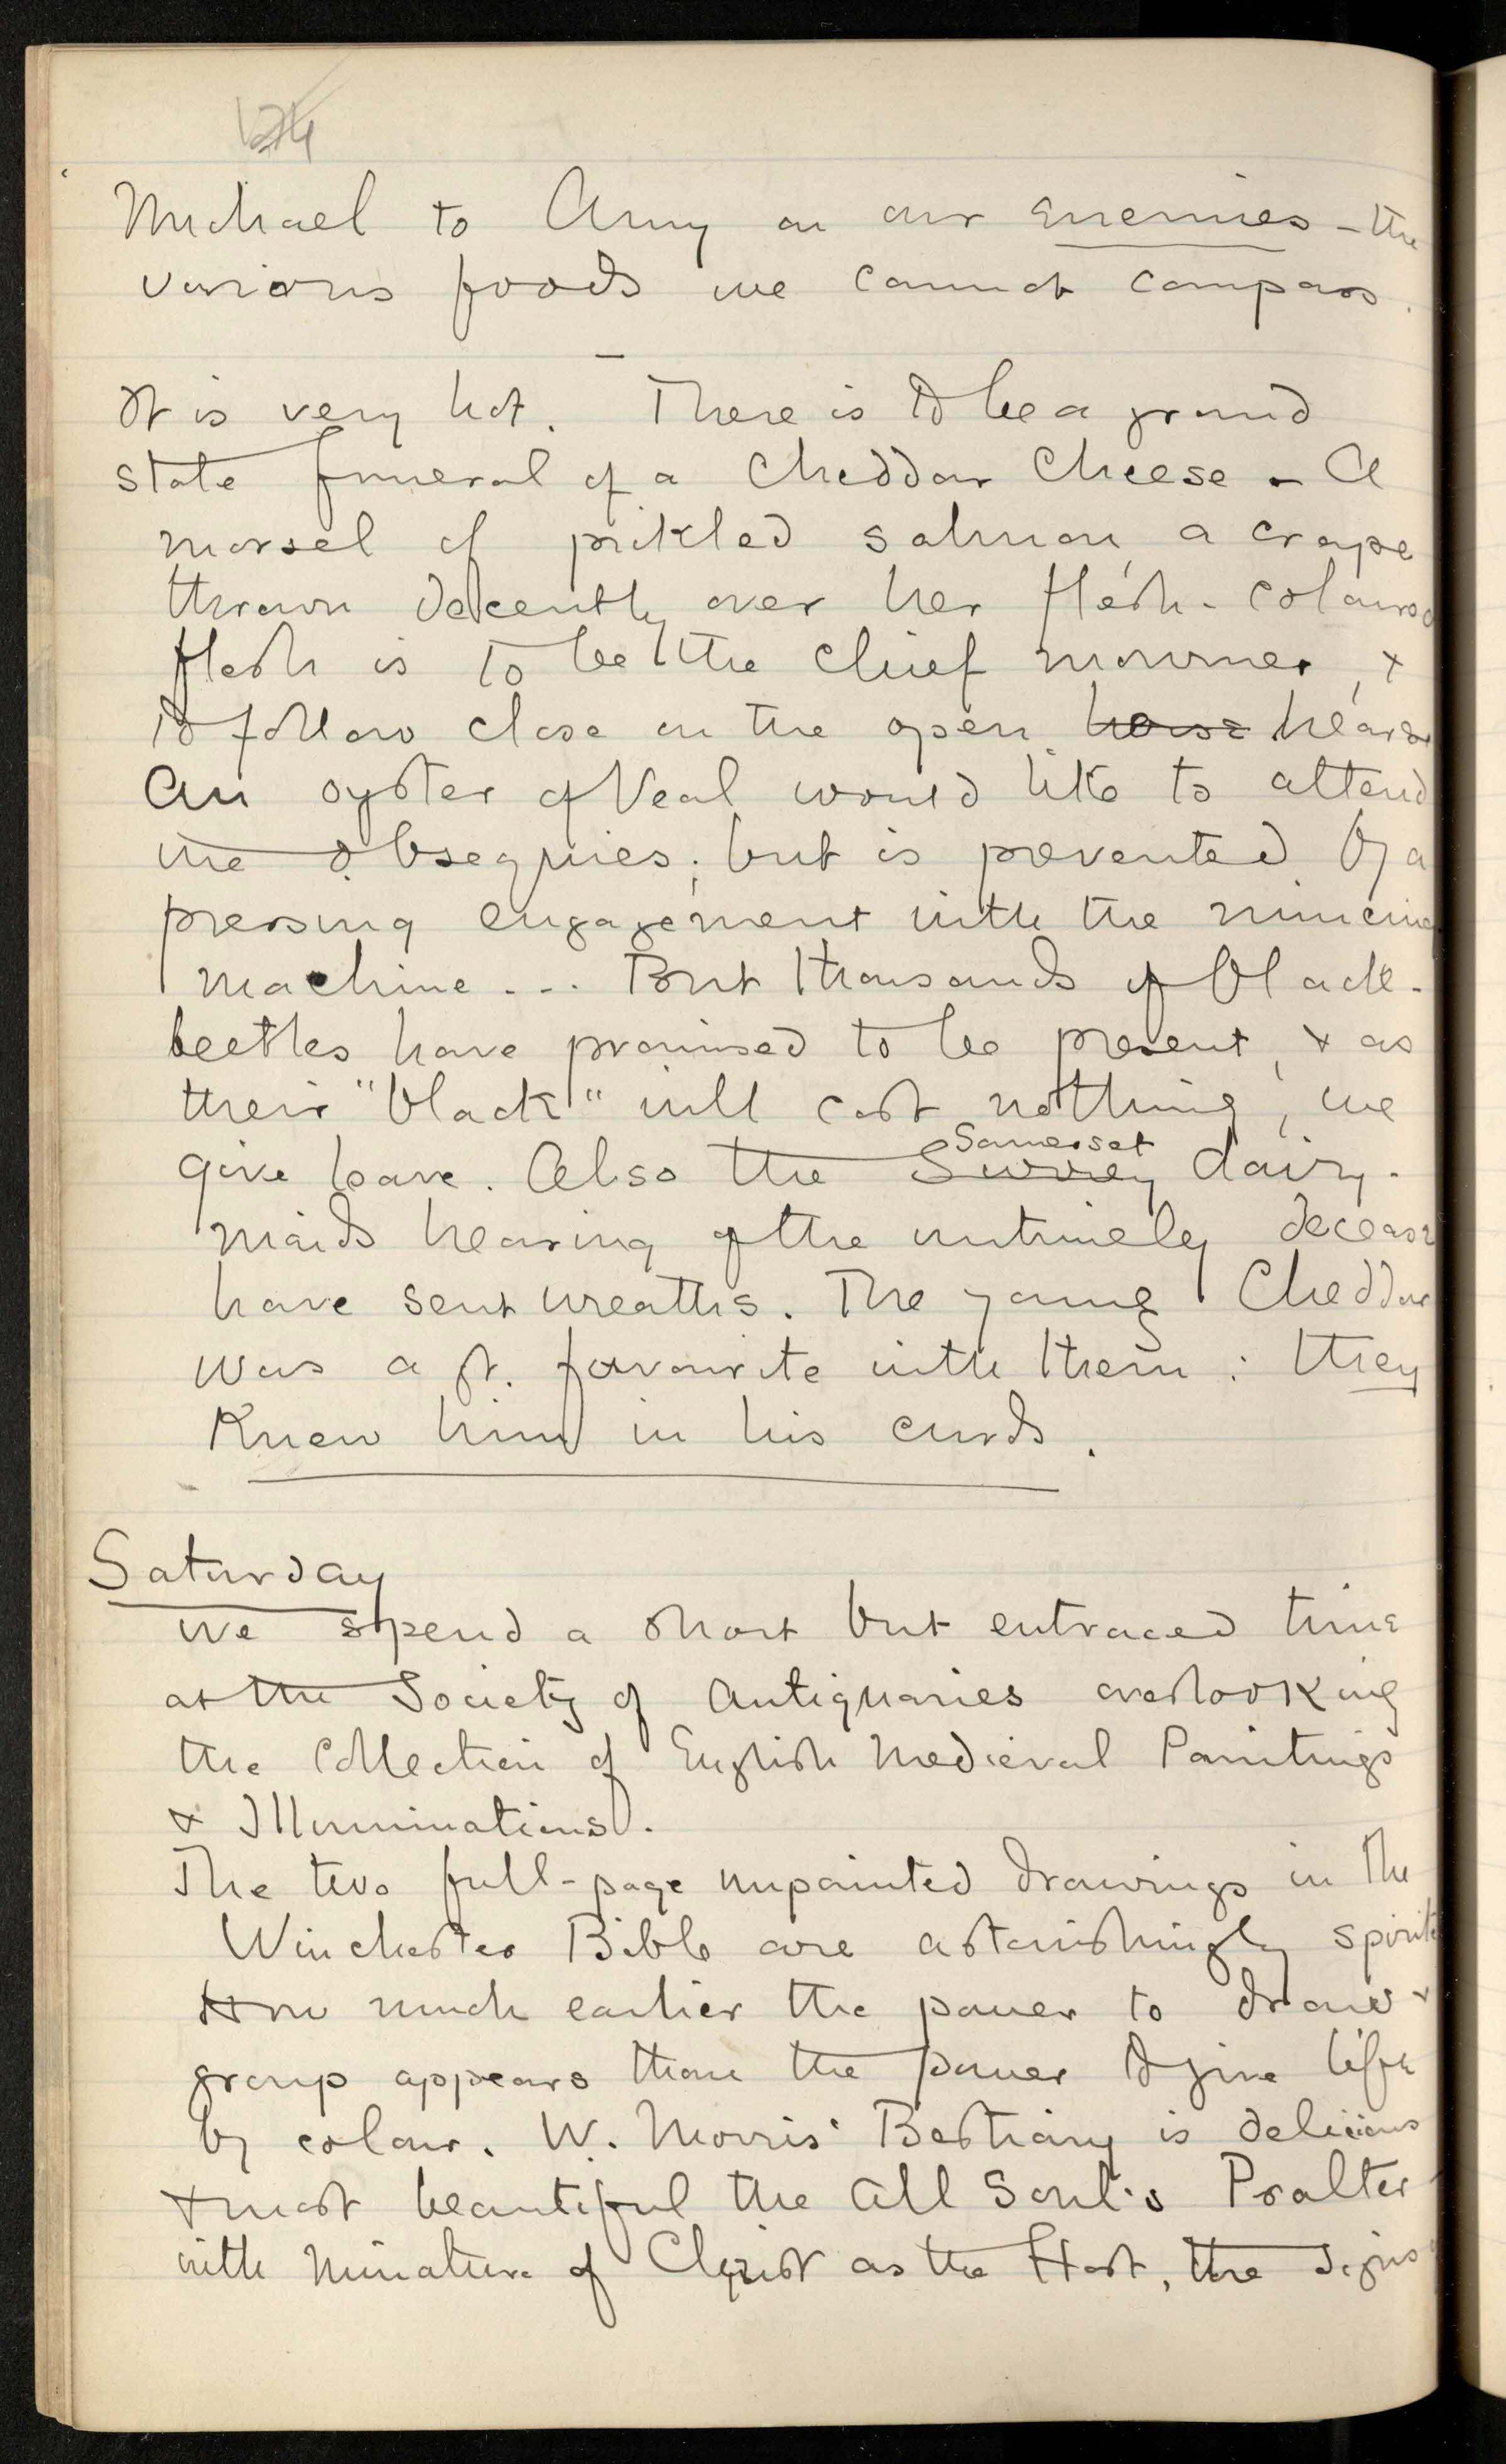 124
Michael to Amy on our enemies - the
various foods we cannot compass.
It is very hot. There is to be a grand
state funeral of a Cheddar Cheese - A
morsel of pickled salmon, a crape
thrown decently over her flesh-coloured
flesh is to be the chief mourner, &
to follow close on the open horse hearse
An oyster of Veal would like to attend
the obsequies; but is prevented by a
pressing engagement with the mincing
machine ... But thousands of black-
beetles have promised to be present, & as
their "black" will cost nothing, we
give leave. Also the Surrey Somerset dairy-
maids hearing of the untimely decease
have sent wreaths. The young Cheddar
was a gt. favourite with them: they
knew him in his curds.
Saturday
We spend a short but entraced time
at the Society of Antiquaries overlooking
the Collection of English Medieval Paintings
& Illuminations.
The two full-page unpainted drawings in the
Winchester Bible are astonishingly spirited
How much earlier the power to draw &
group appears than the power to give life
by colour. W. Morris' Bestiary is delicious
& most beautiful the All Soul's Psalter
with miniature of Christ as the Host, the